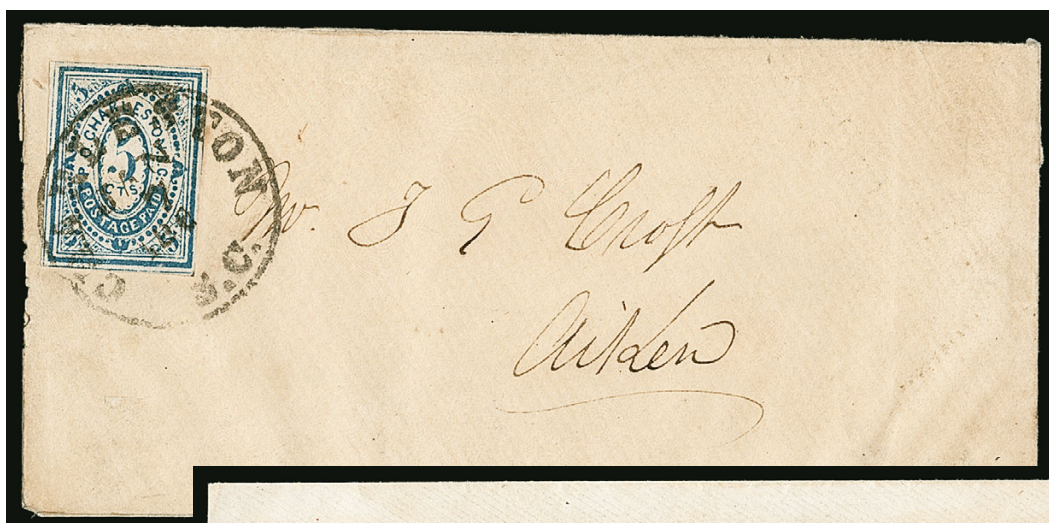 5
P. O. CHARLESTON, S.C.
5
CTS.
POSTAGE PAID
CHARLESTON
S.C.
Mr. T G Croft
Aiken